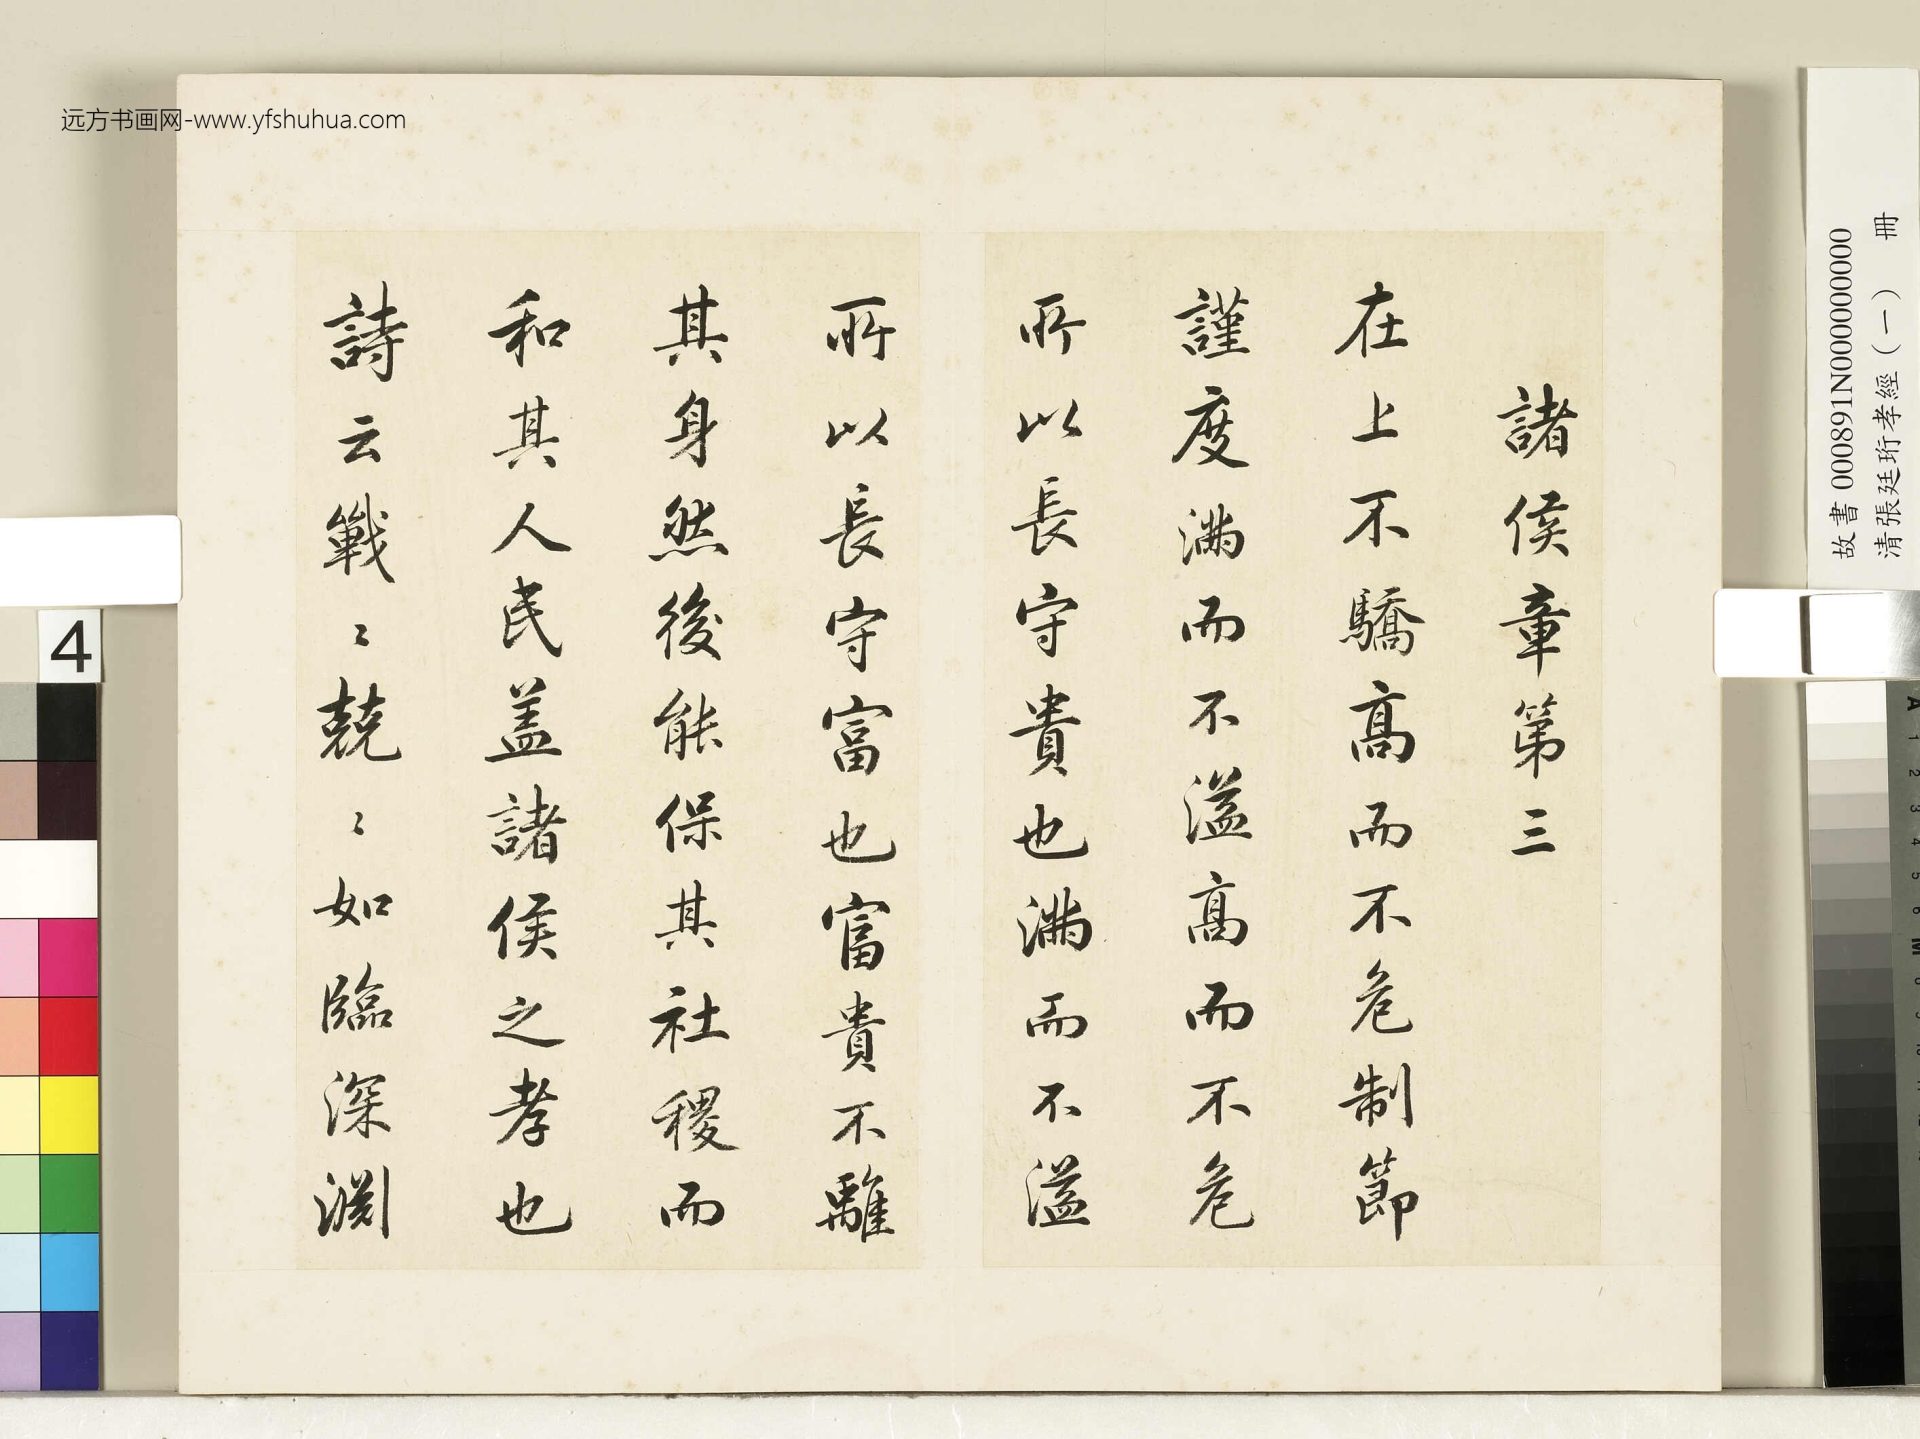 远方书画网-www.yfshuhua.com
諸侯章第三
在上不驕高而不危制節
謹度滿而不溢高而不危
所以長守貴也滿而不溢
所以長守富也富貴不離
其身然後能保其社稷而
和其人民盖諸侯之孝也
詩云戰〻兢〻如臨深淵
故書 000891N000000000
清張廷珩孝經（一） 冊
4
A 1 2 3 4 5 6 M 8 9 10